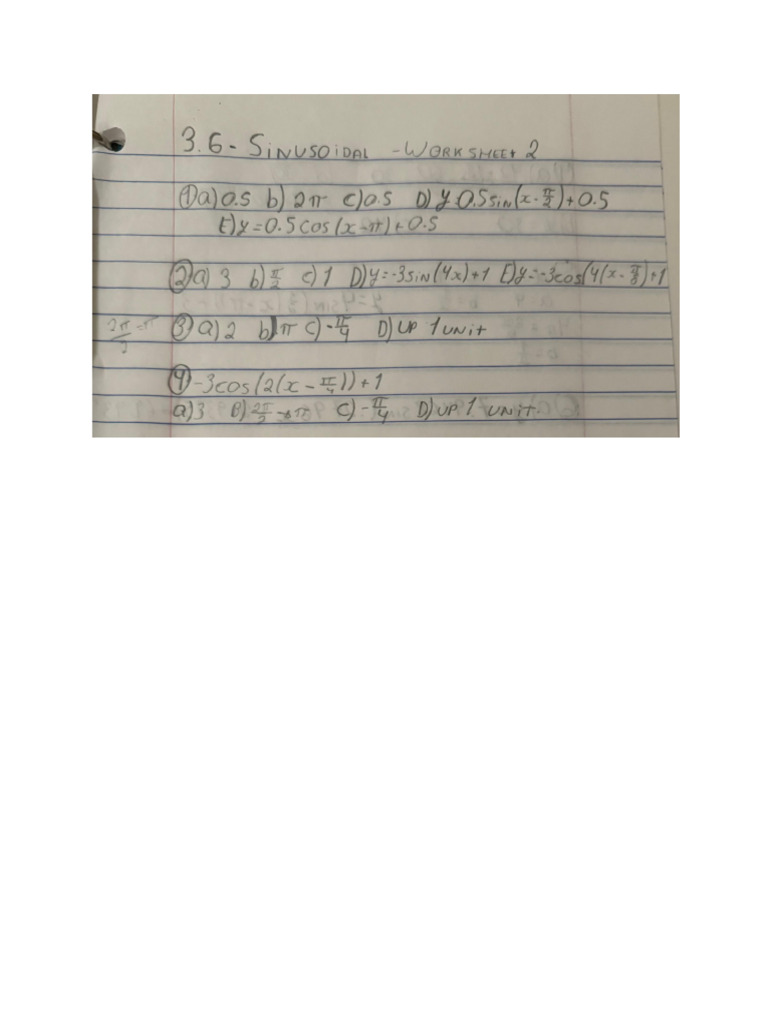 3.6 - SiNUSOiDAL - WORKSHEEt 2
① a) 0.5 b) 2π c) 0.5 D) y 0.5 sin(x - π/2) + 0.5
E) y = 0.5 cos(x - π) + 0.5
② a) 3 b) π/2 c) 1 D) y = -3 sin(4x) + 1 E) y = -3cos(4(x - π/8) + 1
2π/2 = π ③ a) 2 b) π c) -π/4 D) UP 1 UNit
④ -3cos(2(x - π/4)) + 1
a) 3 B) 2π/2 → π c) -π/4 D) UP 1 UNit.